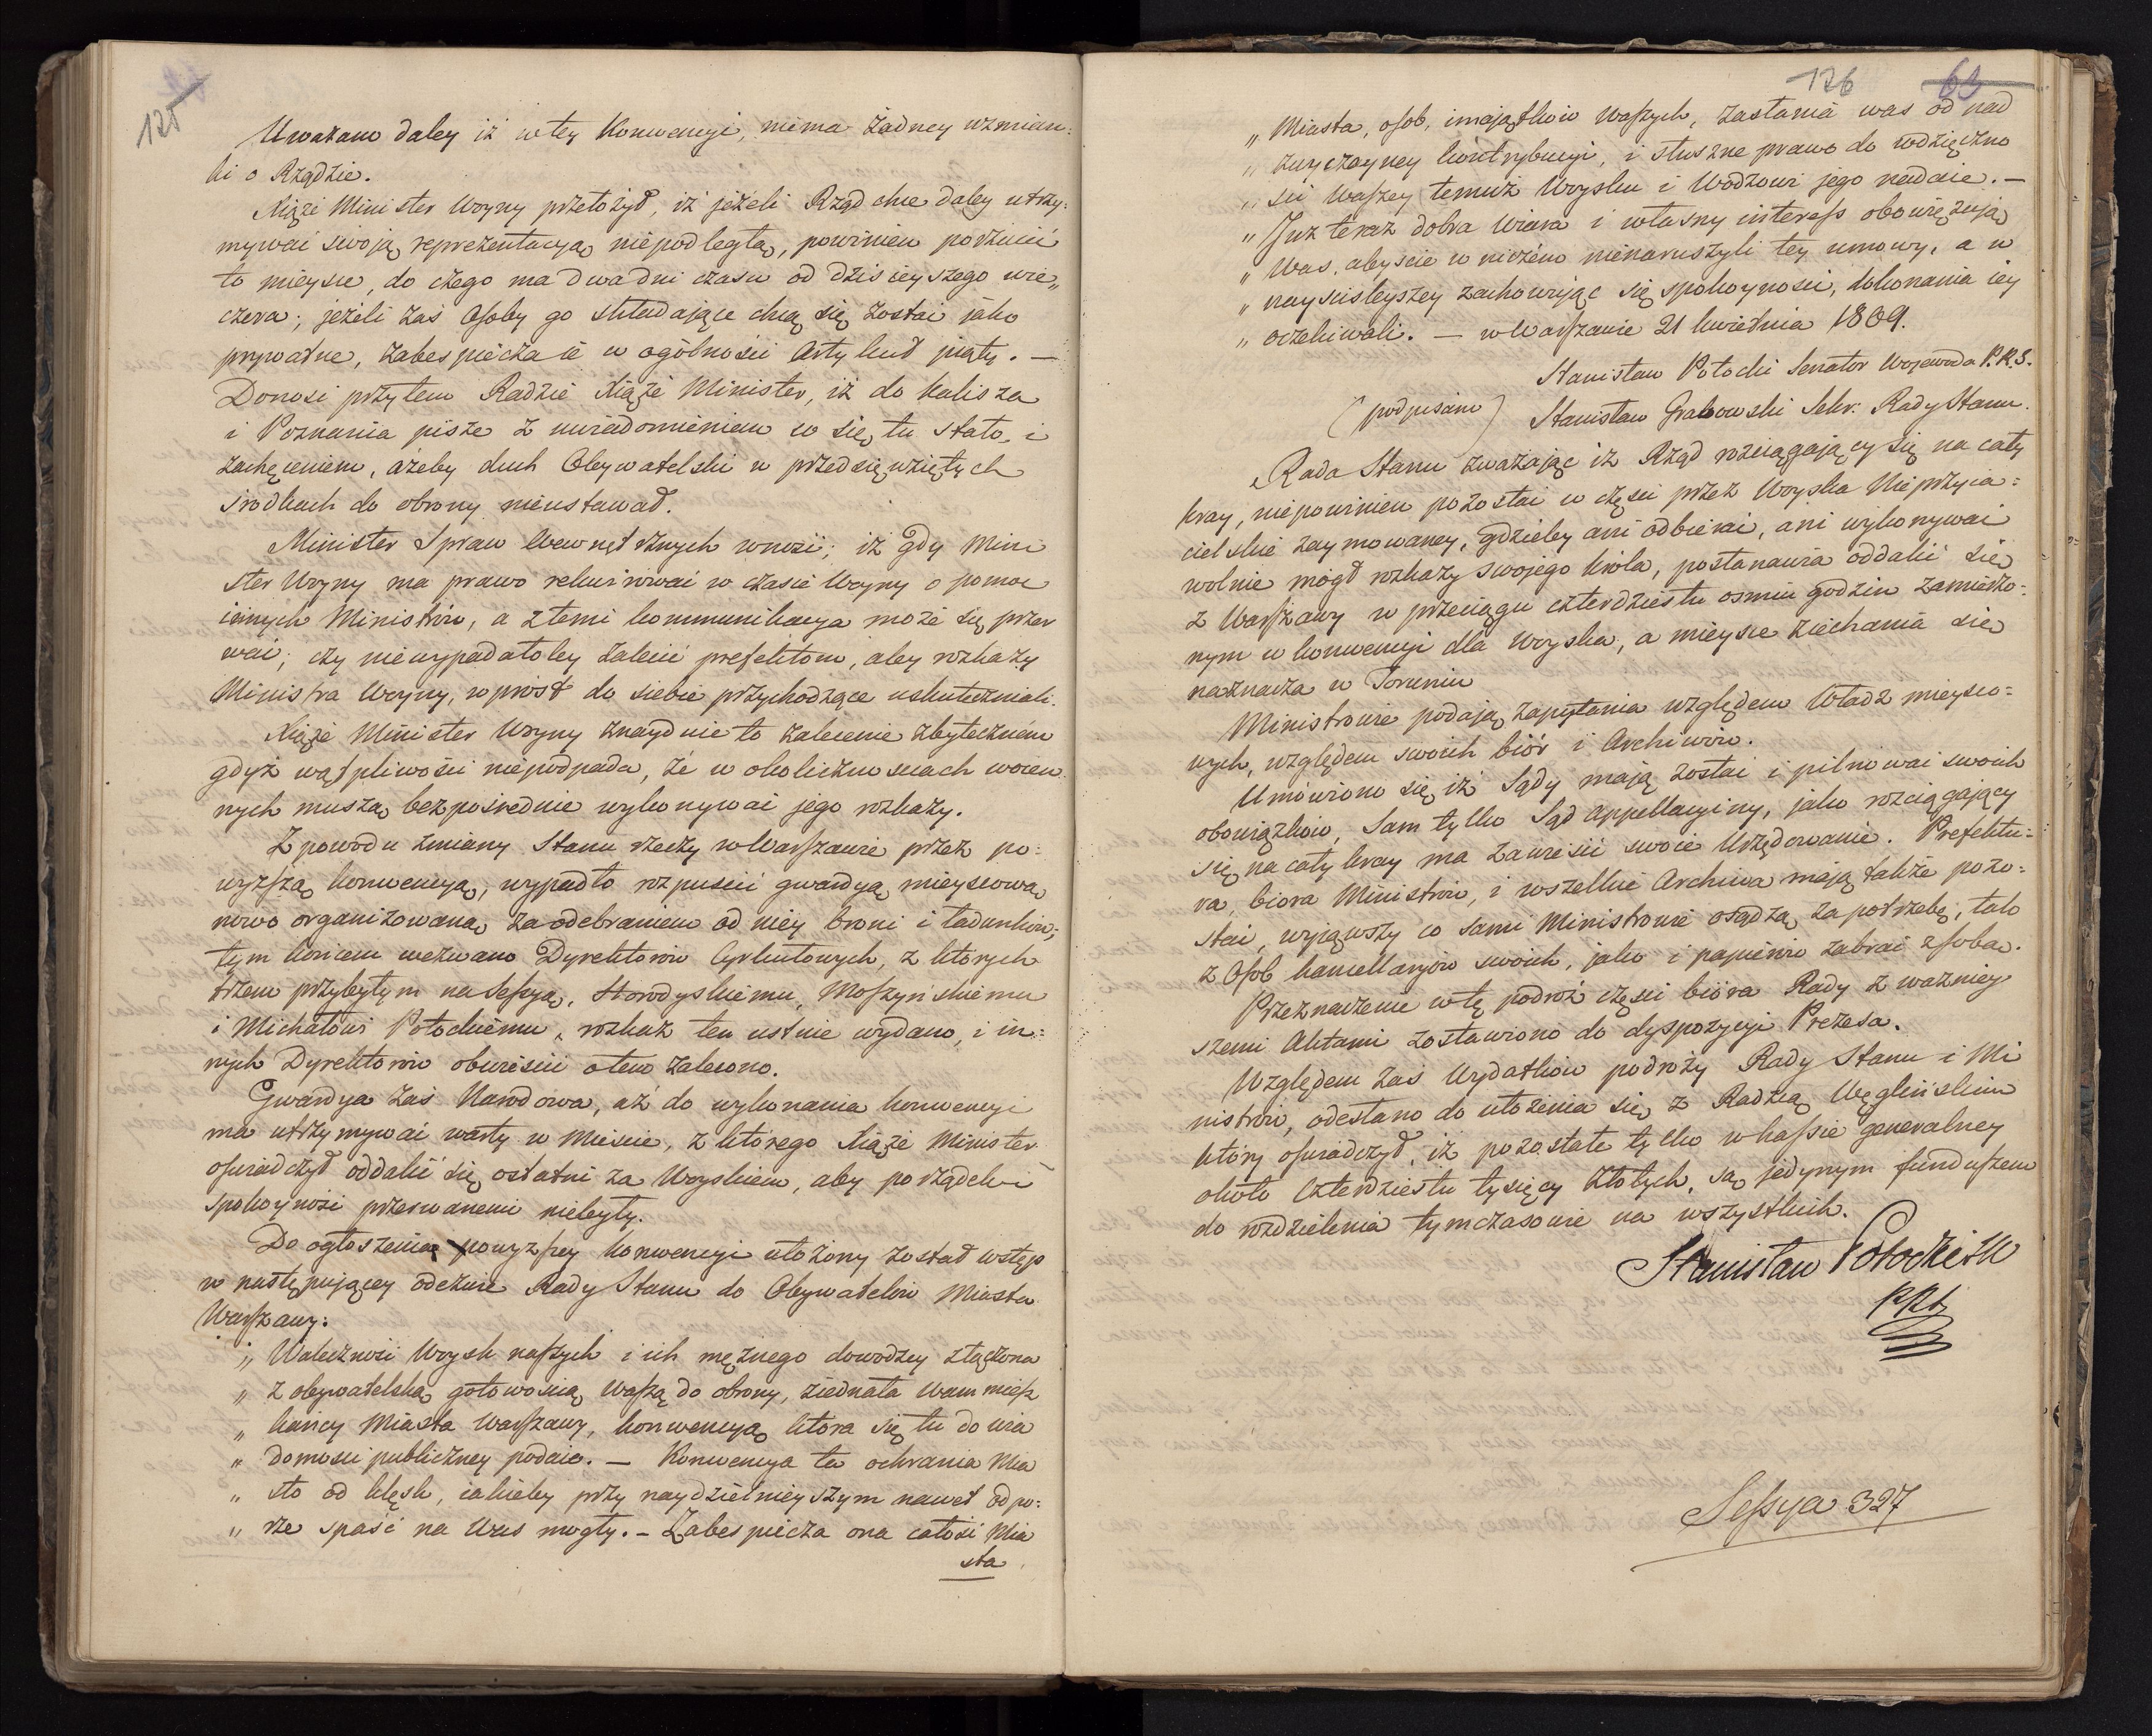 125
Uważam daley iż w tey Konwencyi, niema żadney wzmian:
ki o Rządzie.
Xiąże Minister Woyny przełożył, iż jeżeli Rząd chce daley utrzy:
mywać swoją reprezentacyą niepodległą, powinien porzucić
to mieysce, do czego ma dwa dni czasu od dzisieyszego wie„
czora; jeżeli zaś Osoby go składające chcą się zostać jako
prywatne, zabespiecza ie w ogólności Artykuł piąty. —
Donosi przytem Radzie Xiąże Minister, iż do Kalisza
i Poznania pisze z uwiadomieniem co się tu stało, i
zachęceniem, ażeby duch Obywatelski w przedsięwziętych
środkach do obrony nieustawał.
Minister Spraw Wewnętrznych wnosi; iż gdy Mini
ster Woyny ma prawo rekwirować w czasie Woyny o pomoc
innych Ministrów, a z temi kommunikacya może się przer
wać; czy niewypadałoby zalecić prefektom, aby rozkazy
Ministra Woyny, wprost do siebie przychodzące uskuteczniali.
Xiąże Minister Woyny znayduie to zalecenie zbytecznem
gdyż wątpliwości niepodpada, że w okolicznościach woien
nych muszą bezpośrednie wykonywać jego rozkazy.
Z powodu zmiany Stanu rzeczy w Warszawie przez po:
wyższą konwencyą, wypadło rozpuścić gwardyą mieyscową
nowo organizowaną za odebraniem od niey broni i ładunków;
tym końcem wezwano Dyrektorów Cyrkułowych, z których
trzem przybyłym na Sessyą, Horodyskiemu, Moszyńskiemu
i Michałowi Potockiemu, rozkaz ten ustnie wydano, i in:
nych Dyrektorów obwieścić o tem zalecono.
Gwardya zaś Narodowa, aż do wykonania konwencyi
ma utrzymywać warty w Mieście, z którego Xiąże Minister
oświadczył oddalić się ostatni za Woyskiem, aby porządek i
spokoyność przerwanemi niebyły.
Do ogłoszenia powyższey konwencyi ułożony został wstęp
w następuiącey odezwie Rady Stanu do Obywatelów Miasta
Warszawy:
„ Waleczność Woysk naszych i ich mężnego dowodzcy złączona
„ z obywatelską gotowością waszą do obrony, ziednała Wam miesz
„ kańcy Miasta Warszawy, konwencyą która się tu do wia
„ domości publiczney podaie. — Konwencya ta ochrania Mia
„ sto od klęsk, iakieby przy naydzielnieyszym nawet odpo:
„ rze spaść na Was mogły. — Zabespiecza ona całość Mia
sta
126 62
„ Miasta, osób, i majątków Waszych, zasłania was od nad
„ zwyczayney kontrybucyi, i słuszne prawo do wdzięczno
„ ści Waszey temuż Woysku i Wodzowi jego nadaie. —
„ Już teraz dobra wiara i własny interess obowięzują
„ Was, abyście w niczém nienaruszyli tey umowy, a w
„ nayściśleyszey zachowując się spokoyności, dokonania iey
„ oczekiwali. — w Warszawie 21 kwietnia 1809.
Stanisław Potocki Senator Wojewoda P.R.S.
(podpisano) Stanisław Grabowski Sekr: Rady Stanu.
Rada Stanu zważając iż Rząd rozciągający się na cały
kray, niepowinien pozostać w części przez Woyska Nieprzyia:
cielskie zaymowaney, gdzieby ani odbierać, ani wykonywać
wolnie mógł rozkazy swojego Króla, postanawia oddalić się
z Warszawy w przeciągu czterdziestu ośmiu godzin zamierzo:
nym w konwencyi dla Woyska, a mieysce ziechania się
naznacza w Toruniu
Ministrowie podają zapytania względem Władz mieysco=
wych, względem swoich biór i Archiwów.
Umówiono się iż Sądy mają zostać i pilnować swoich
obowiązków, Sam tylko Sąd Appellacyiny, jako rozciągający
się na cały kray ma zawiesić swoie Urzędowanie. Prefektu=
ra, biora Ministrów, i wszelkie Archiwa mają także pozo:
stać, wyjąwszy co sami Ministrowie osądzą za potrzebę, tak
z Osób kancellaryów swoich, jako i papierów zabrać z sobą.
Przeznaczenie w tę podróż części bióra Rady z ważniey
szemi Aktami zostawiono do dyspozycyi Prezesa.
Względem zaś Wydatków podróży Rady Stanu i Mi
nistrów, odesłano do ułożenia się z Radzcą Węgleńskim
który oświadczył, iż pozostałe tylko w kassie generalney
około czterdziestu tysięcy Złotych, są jedynym funduszem
do rozdzielenia tymczasowie na wszystkich.
Stanisław Potocki SW
PRS
Sessya 327